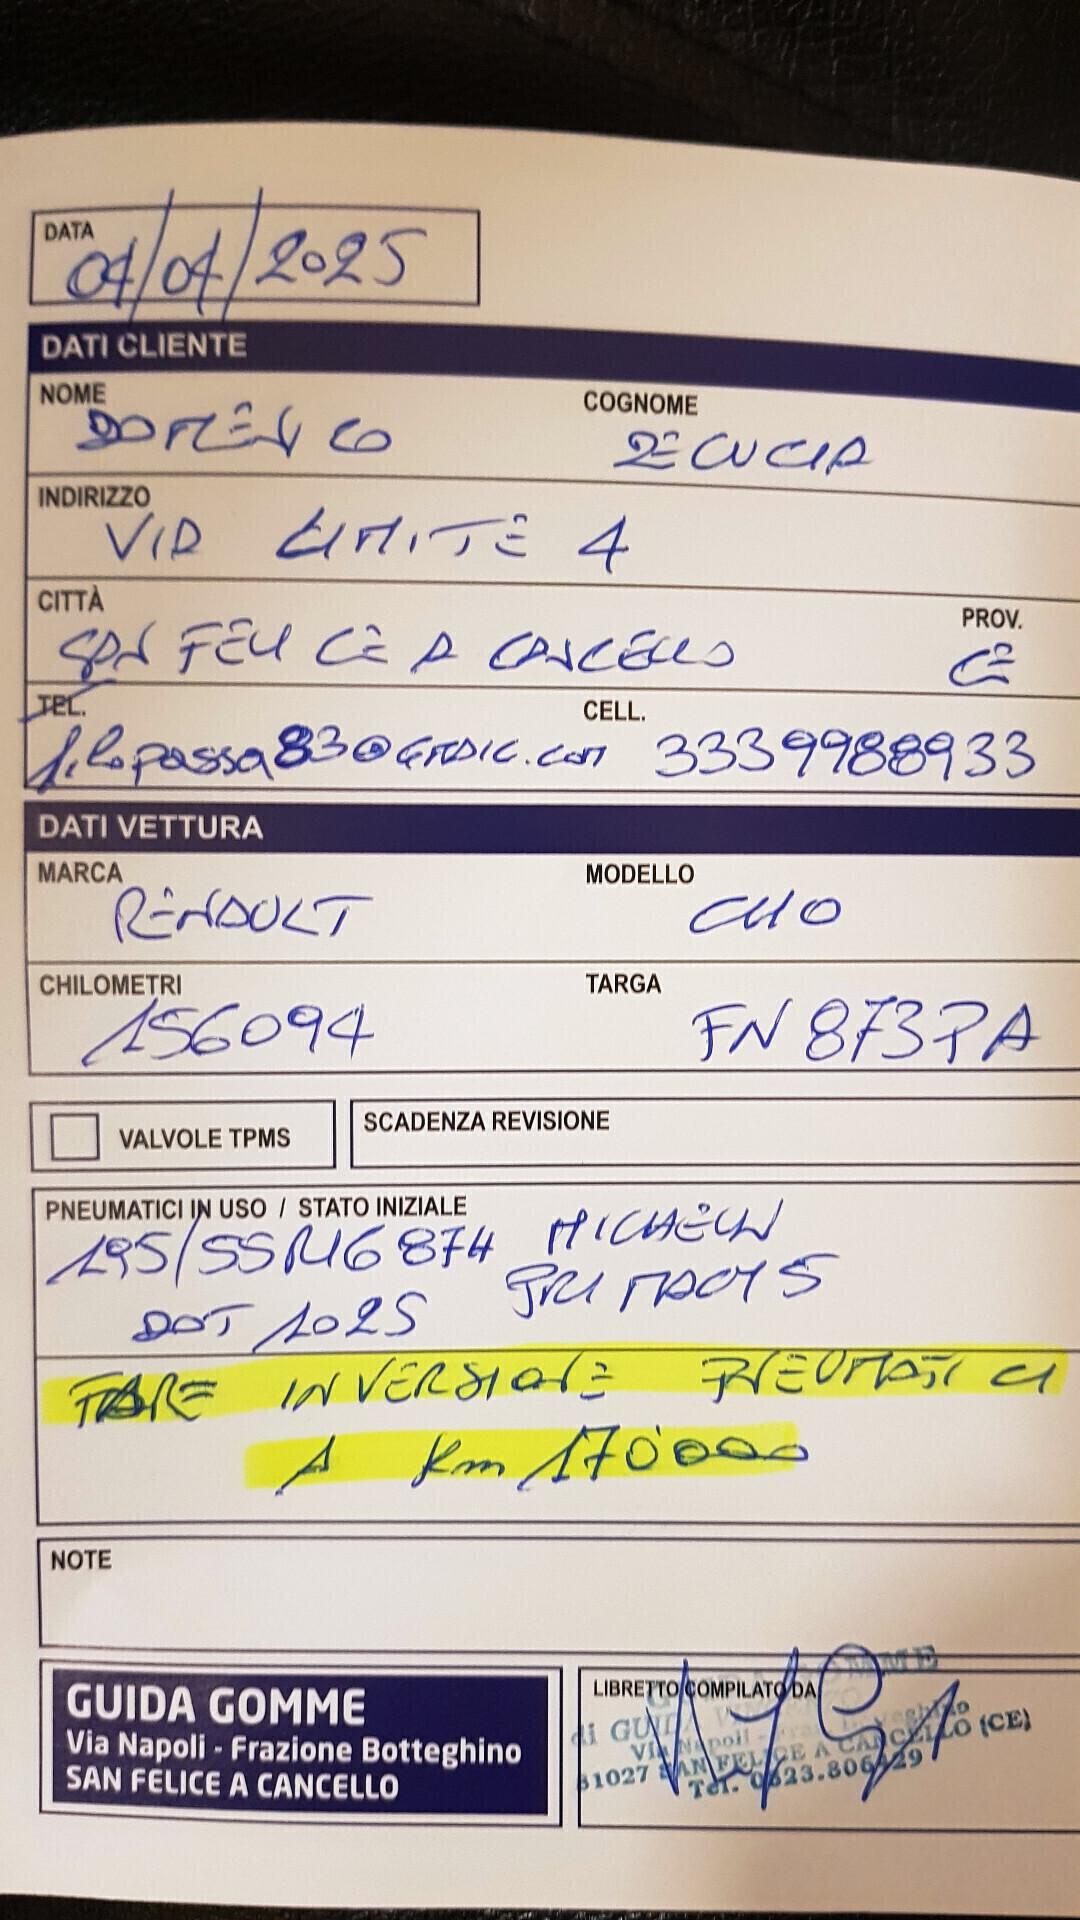 DATA
04/04/2025
DATI CLIENTE
NOME
DOMENICO
COGNOME
ZECUCIA
INDIRIZZO
VIA LIMITE 4
CITTÀ
SAN FELICE A CANCELLO
PROV.
CE
TEL.
filopassa83@GMAIL.com
CELL.
3339988933
DATI VETTURA
MARCA
RENAULT
MODELLO
CLIO
CHILOMETRI
156094
TARGA
FN 873PA
VALVOLE TPMS
SCADENZA REVISIONE
PNEUMATICI IN USO / STATO INIZIALE
195/55R16 87H MICHELIN
DOT 1025 PRIMACY 5
FARE INVERSIONE PNEUMATICI
A Km 170000
NOTE
GUIDA GOMME
Via Napoli - Frazione Botteghino
SAN FELICE A CANCELLO
LIBRETTO COMPILATO DA
di GUIDA
Via Napoli - Fraz. Botteghino
81027 SAN FELICE A CANCELLO (CE)
Tel. 0823.806429